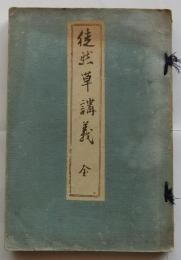 徒然草講義 全